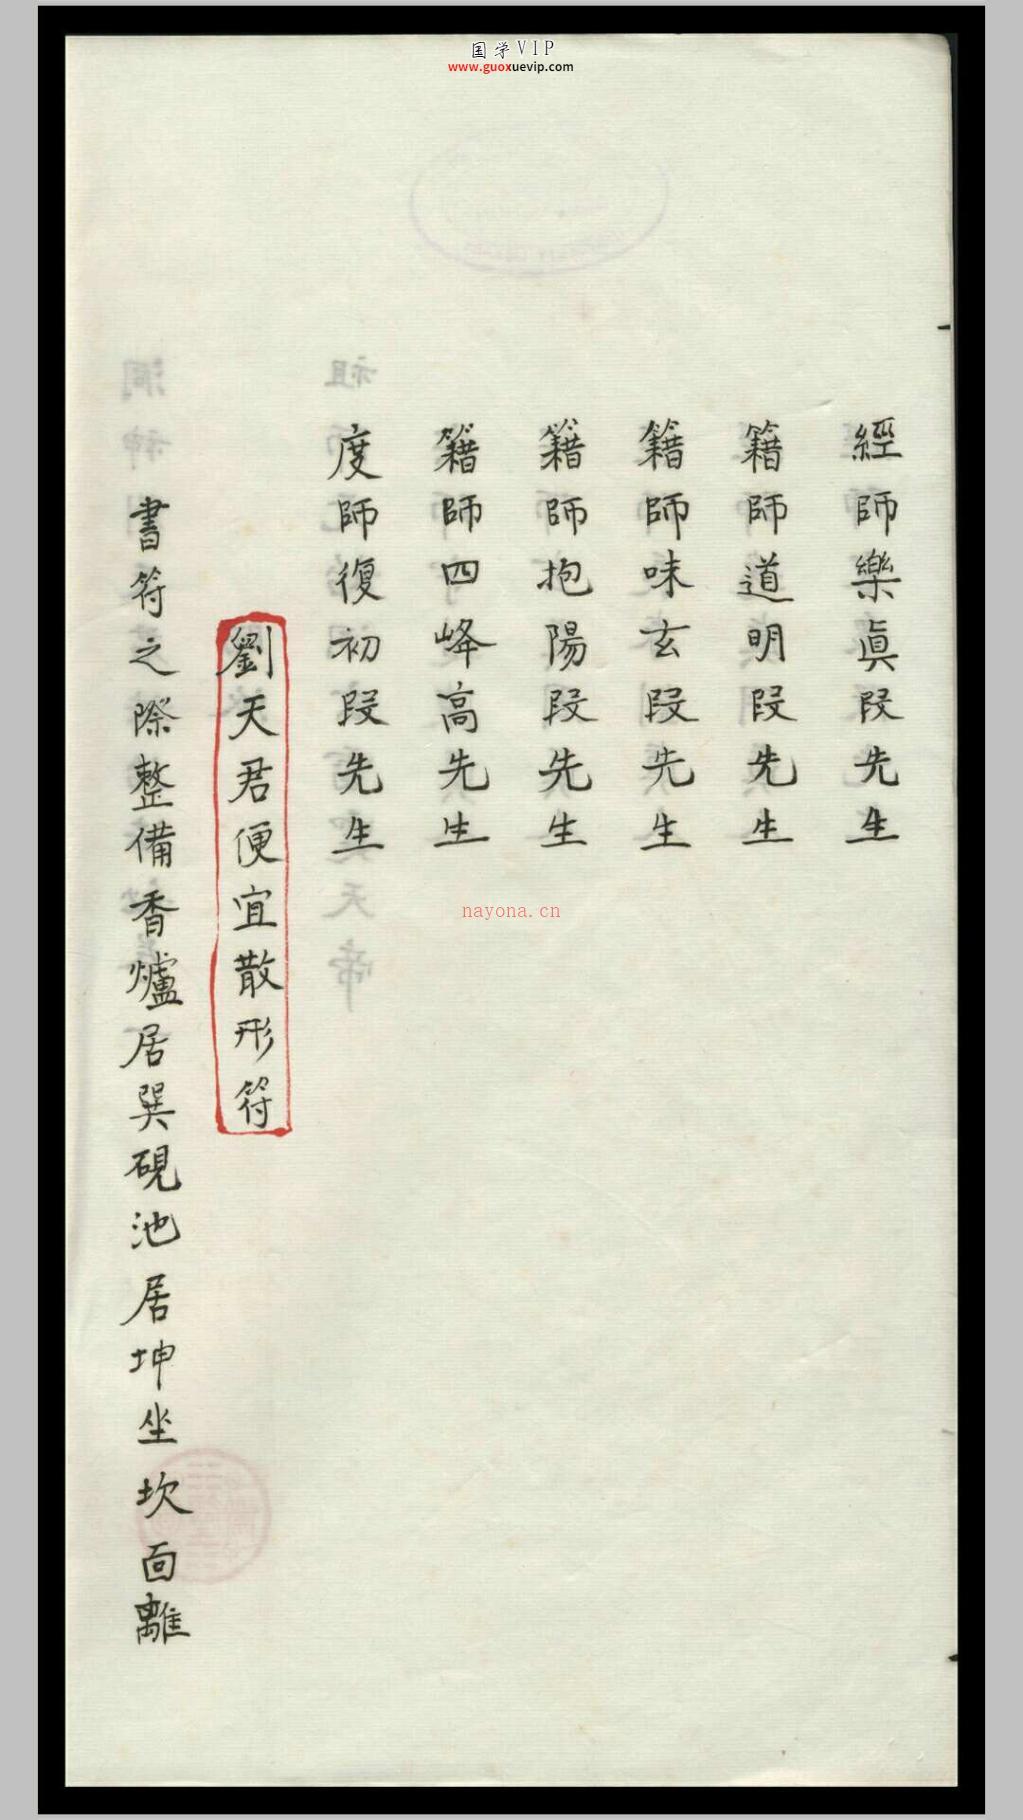 国学VIP
www.guoxuevip.com
經師樂眞段先生
籍師道明段先生
籍師味玄段先生
籍師抱陽段先生
籍師四峰高先生
度師復初段先生
劉天君便宜散形符
書符之際整備香爐居巽硯池居坤坐坎面離
nayona.cn